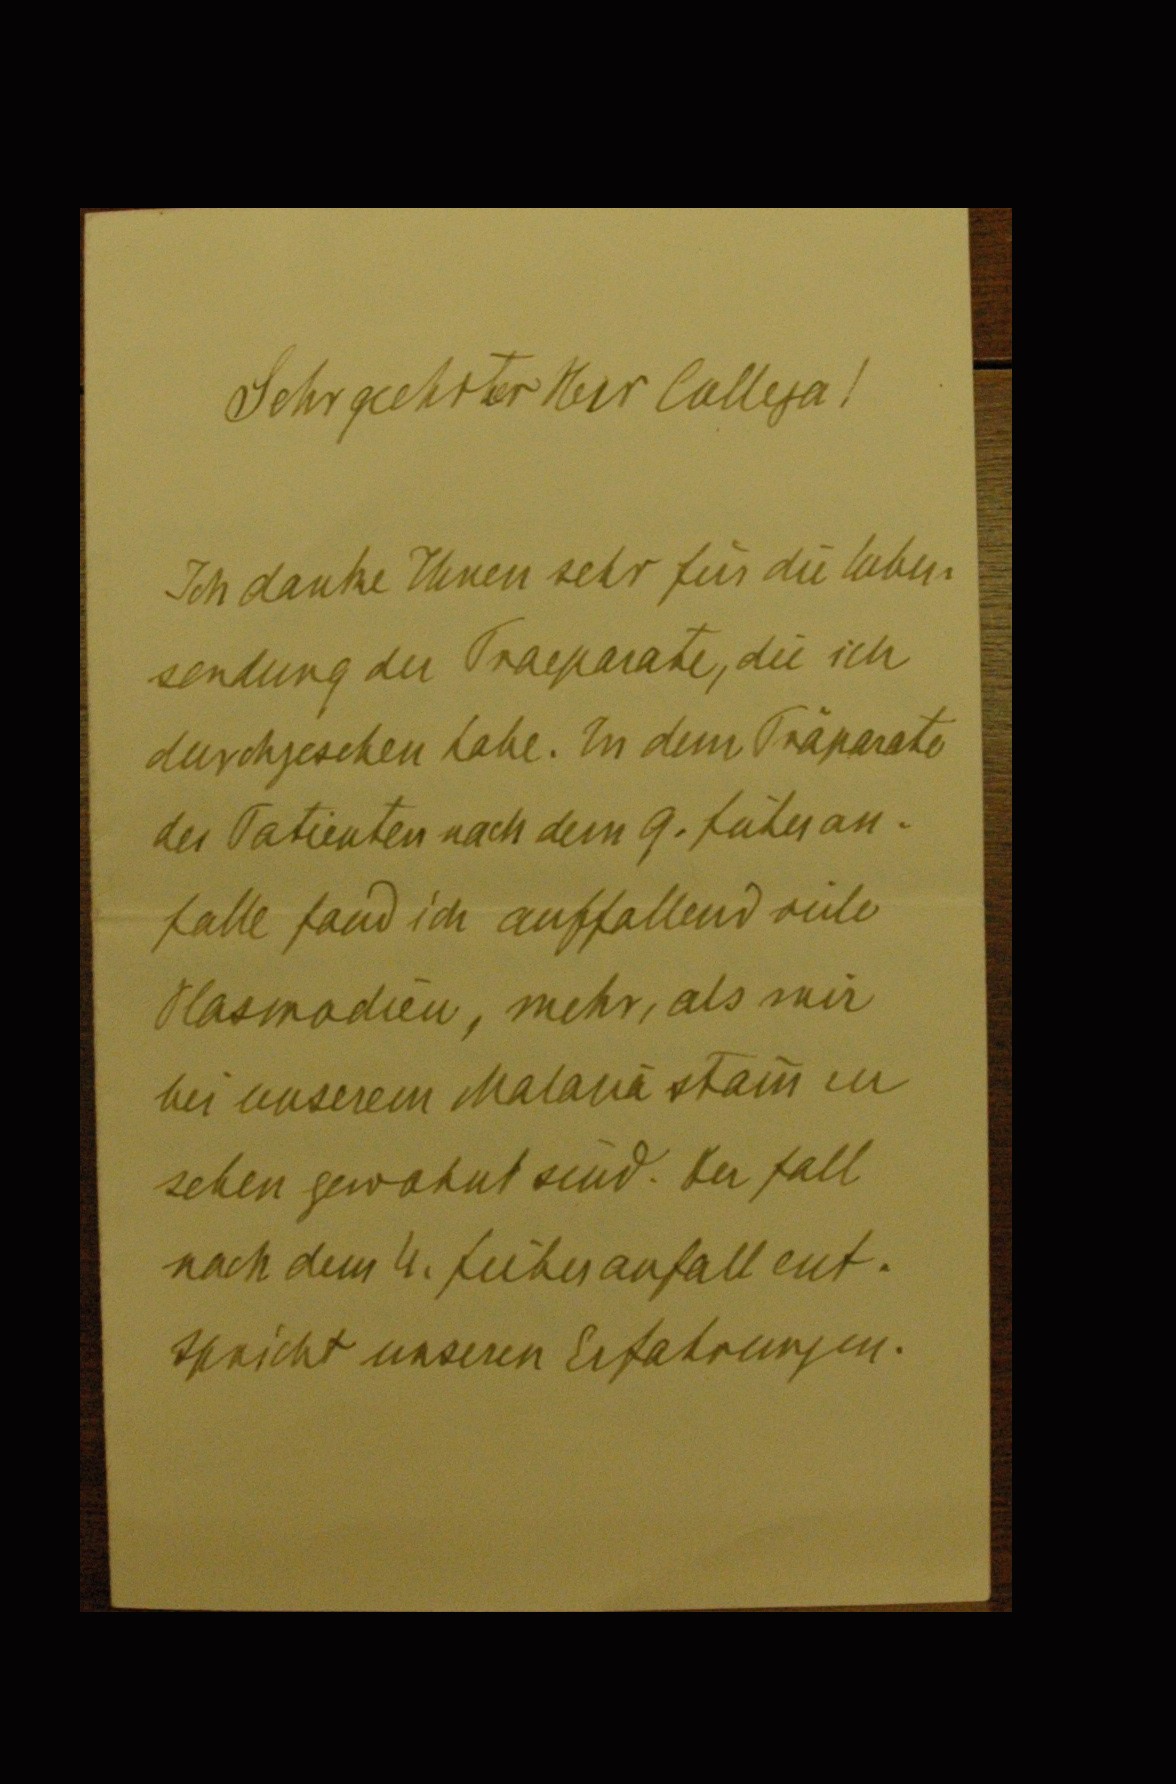 Sehr geehrter Herr Collega!
Ich danke Ihnen sehr für die Ueber-
sendung der Praeparate, die ich
durchgesehen habe. In dem Präparate
des Patienten nach dem 9. Fieberan-
falle fand ich auffallend viele
Plasmodien, mehr, als wir
bei unserem Malariastam̅ zu
sehen gewohnt sind. Der Fall
nach dem 4. Fieberanfall ent-
spricht unseren Erfahrungen.